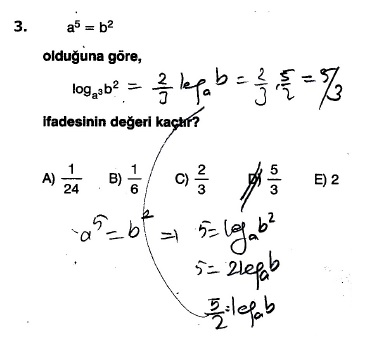 3. a⁵ = b²
olduğuna göre,
log_a³ b² = 2/3 log_a b = 2/3 . 5/2 = 5/3
ifadesinin değeri kaçtır?
A) 1/24 B) 1/6 C) 2/3 D) 5/3 E) 2
a⁵ = b² ⇒ 5 = log_a b²
5 = 2 log_a b
5/2 = log_a b